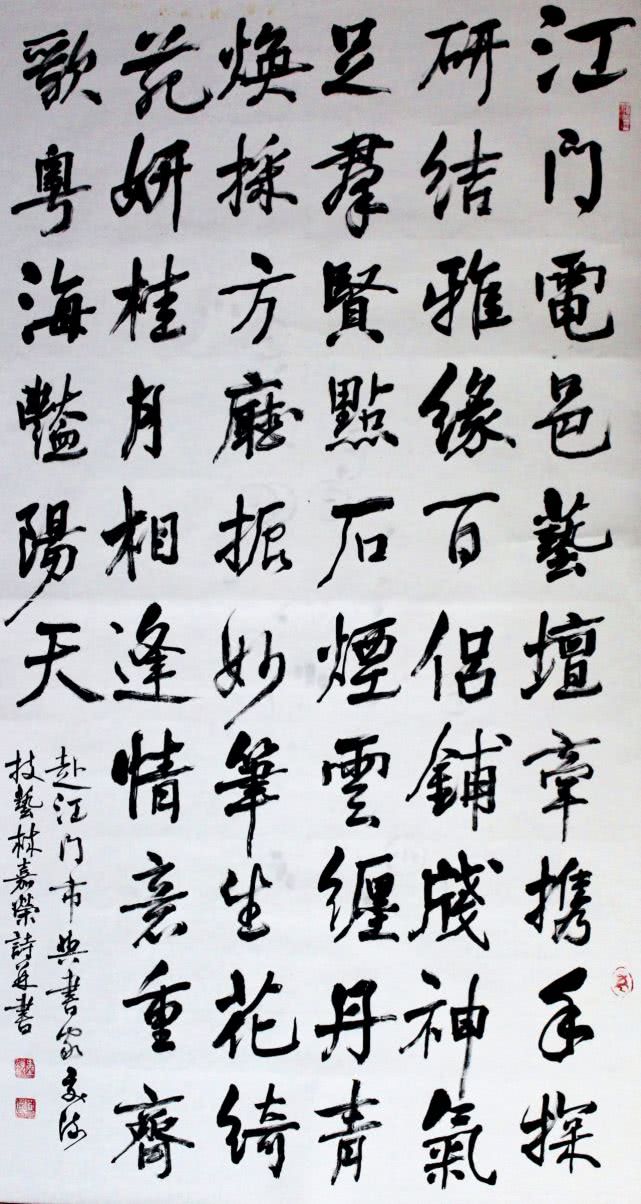 江門電邑藝壇牽携手探
研結雅緣百侶鋪牋神氣
足羣賢點石煙雲纏丹青
煥採方廳振妙筆生花綺
苑妍桂月相逢情意重齊
歌粵海豔陽天
赴江門市與書家交流
技藝林嘉榮詩並書